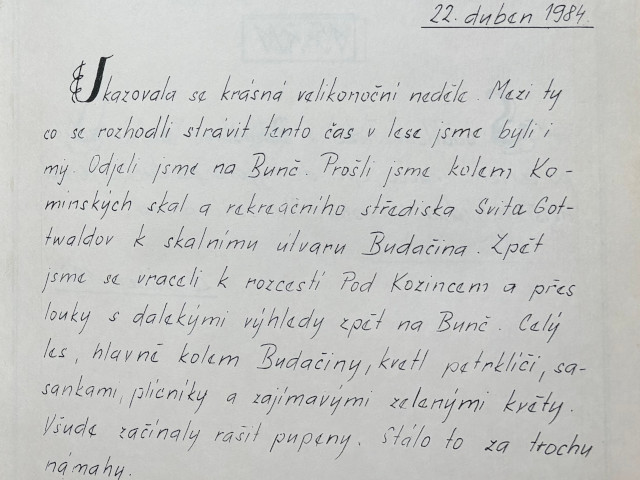 22. duben 1984.
Ukazovala se krásná velikonoční neděle. Mezi ty
co se rozhodli strávit tento čas v lese jsme byli i
my. Odjeli jsme na Bunč. Prošli jsme kolem Ko-
mínských skal a rekreačního střediska Svita Got-
twaldov k skalnímu útvaru Budačina. Zpět
jsme se vraceli k rozcestí Pod Kozincem a přes
louky s dalekými výhledy zpět na Bunč. Celý
les, hlavně kolem Budačiny, kvetl petrklíči, sa-
sankami, plicníky a zajímavými zelenými květy.
Všude začínaly rašit pupeny. Stálo to za trochu
námahy.